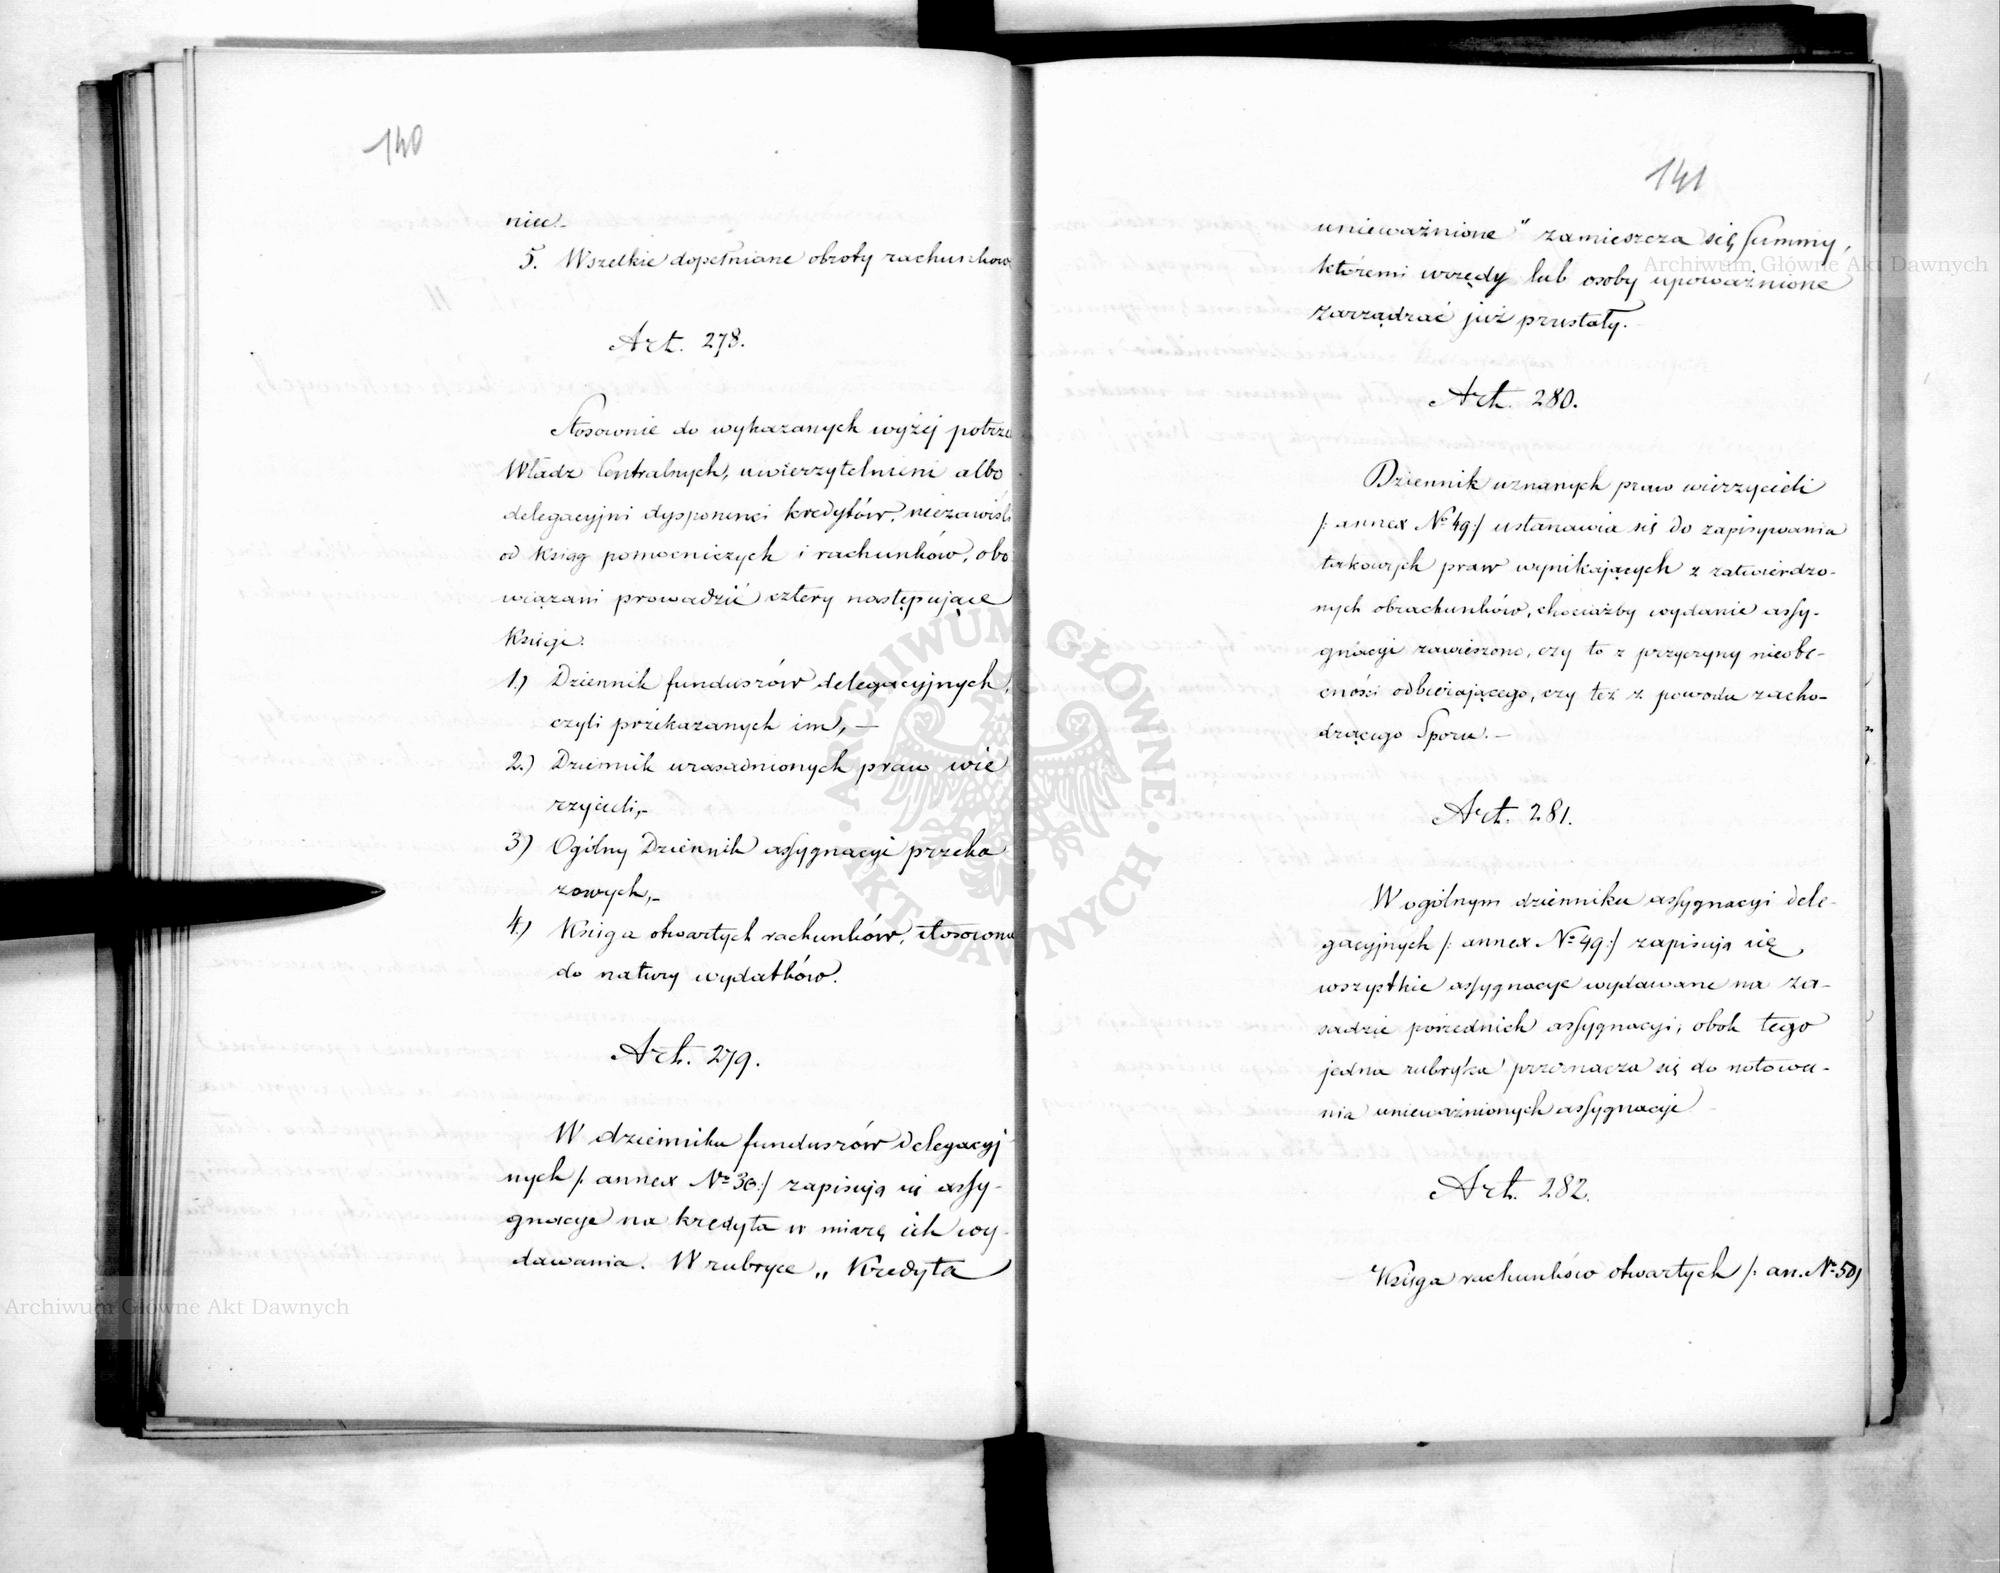 140
niec.-
5. Wszelkie dopełniane obroty rachunkow
Art. 278.
Stosownie do wykazanych wyżej potrze
Władz Centralnych, uwierzytelnieni albo
delegacyjni dysponenci kredytów, niezawiśl
od ksiąg pomocniczych i rachunków, obo
wiązani prowadzić cztery następujące
księgi:
1.) Dziennik funduszów delegacyjnych,
czyli przekazanych im, —
2.) Dziennik uzasadnionych praw wie
rzycieli,-
3) Ogólny Dziennik assygnacyi przeka
zowych,-
4.) Księga otwartych rachunków, stosowna
do natury wydatków.
Art. 279.
W dzienniku funduszów delegacyj
nych /: annex № 36:/ zapisują się assy-
gnacye na kredyta w miarę ich wy-
dawania. W rubryce „ Kredyta
141
unieważnione" zamieszcza się summy,
któremi urzędy lub osoby upoważnione
zarządzać już przestały.
Art. 280.
Dziennik uznanych praw wierzycieli
/: annex № 49:/ ustanawia się do zapisywania
takowych praw wynikających z zatwierdzo-
nych obrachunków, chociażby wydanie assy-
gnacyi zawieszono, czy to z przyczyny nieobe-
cności odbierającego, czy też z powodu zacho-
dzącego sporu.—
Art. 281.
W ogólnym dzienniku assygnacyi dele-
gacyjnych /: annex № 49:/ zapisują się
wszystkie assygnacye wydawane na za-
sadzie pośrednich assygnacyi; obok tego
jedna rubryka przeznacza się do notowa-
nia unieważnionych assygnacyi
Art. 282.
Księga rachunków otwartych /: an. № 50/
Archiwum Główne Akt Dawnych
ARCHIWUM GŁÓWNE · AKT DAWNYCH ·
Archiwum Główne Akt Dawnych